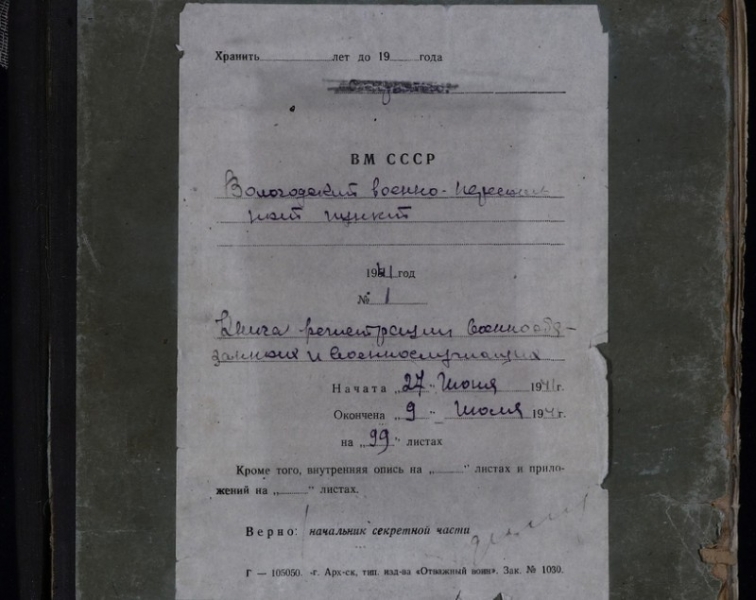 Хранить лет до 19 года
ВМ СССР
Вологодский военно-пересыль
ной пункт
1941 год
№ 1
Книга регистрации военнообя-
занных и военнослужащих
Начата „27“ июня 1941 г.
Окончена „9“ июля 1941 г.
на „99“ листах
Кроме того, внутренняя опись на „ “ листах и прило-
жений на „ “ листах.
Верно: начальник секретной части
Г — 105050. г. Арх-ск, тип. изд-ва «Отважный воин». Зак. № 1030.